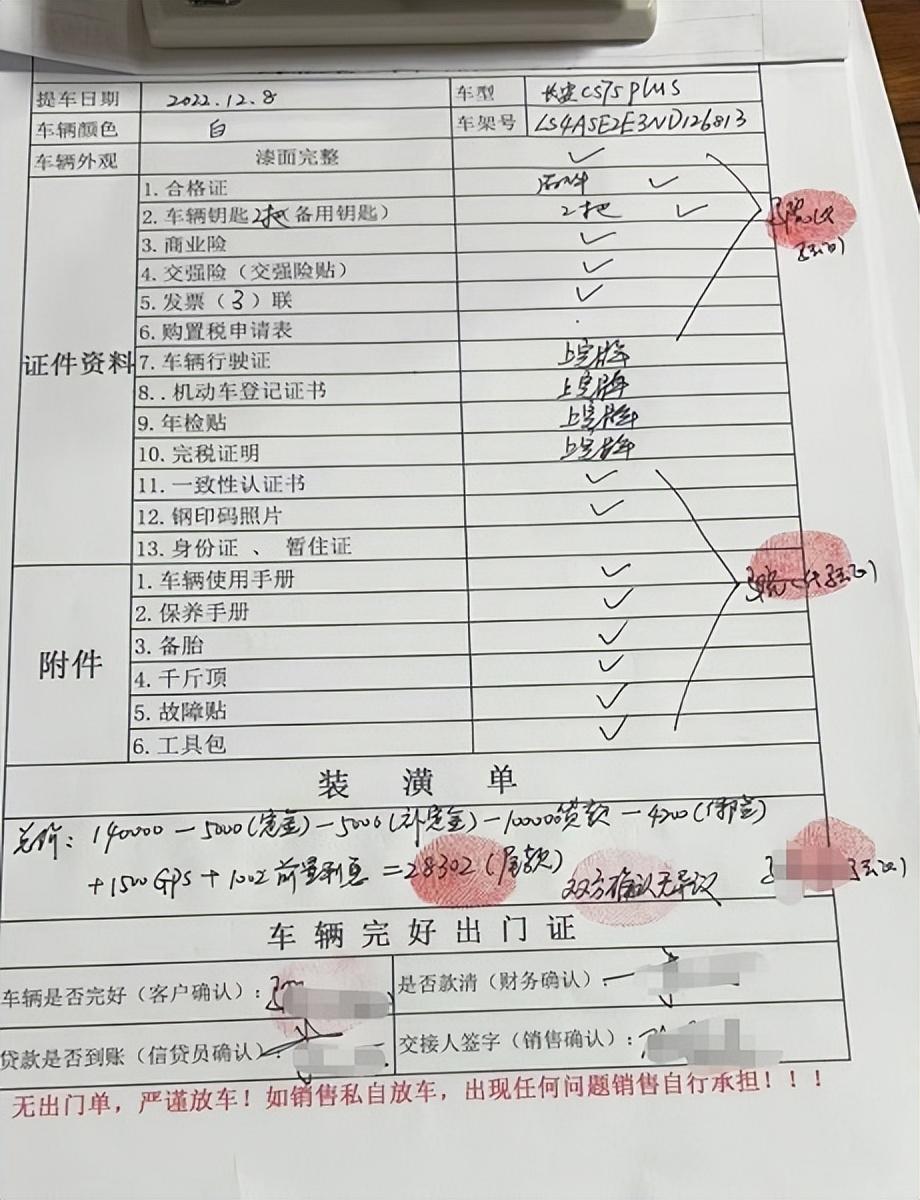 提车日期 2022.12.8 车型 长安CS75PLUS
车辆颜色 白 车架号 LS4ASE2E3ND126813
车辆外观 漆面完整 ✓
证件资料
1.合格证 ✓
2.车辆钥匙2把(备用钥匙) 2把 ✓
3.商业险 ✓
4.交强险(交强险贴) ✓
5.发票(3)联 ✓
6.购置税申请表
7.车辆行驶证 上完牌
8..机动车登记证书 上完牌
9.年检贴 上完牌
10.完税证明 上完牌
11.一致性认证书 ✓
12.钢印码照片 ✓
13.身份证 、 暂住证
附件
1.车辆使用手册 ✓
2.保养手册 ✓
3.备胎 ✓
4.千斤顶 ✓
5.故障贴 ✓
6.工具包 ✓
装 潢 单
总价：140000－5000(定金)－5000(补定金)－100000贷款－4200(绑定)
+1500GPS+1002前置利息=28302(尾款)
双方确认无异议
车辆完好出门证
车辆是否完好(客户确认)： 是否款清(财务确认)：
贷款是否到账(信贷员确认)： 交接人签字(销售确认)：
无出门单，严谨放车！如销售私自放车，出现任何问题销售自行承担！！！